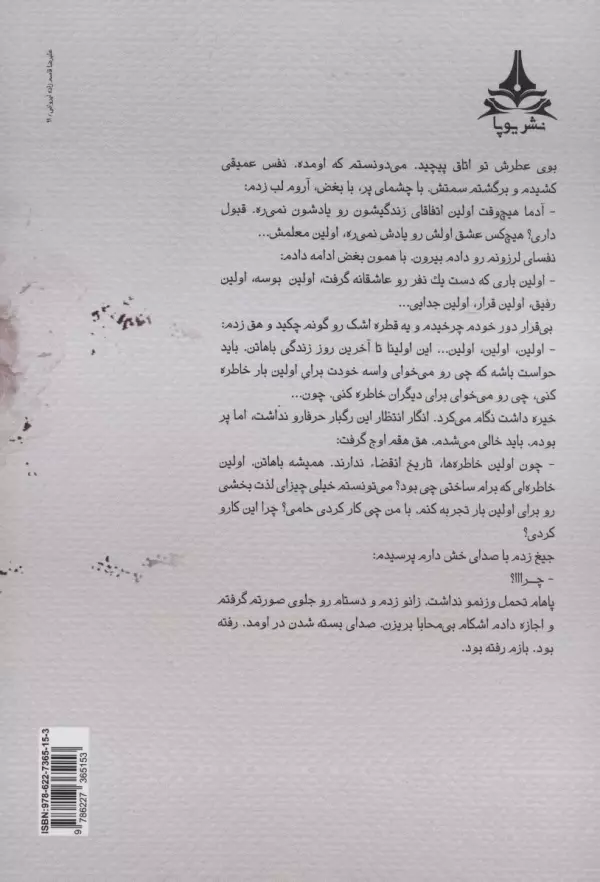 نشر یوپا
بوی عطرش تو اتاق پیچید. می‌دونستم که اومده. نفس عمیقی
کشیدم و برگشتم سمتش. با چشمای پر، با بغض، آروم لب زدم:
- آدما هیچ‌وقت اولین اتفاقای زندگیشون رو یادشون نمی‌ره. قبول
داری؟ هیچ‌کس عشق اولش رو یادش نمی‌ره، اولین معلمش...
نفسای لرزونم رو دادم بیرون. با همون بغض ادامه دادم:
- اولین باری که دست یك نفر رو عاشقانه گرفت، اولین بوسه، اولین
رفیق، اولین قرار، اولین جدایی...
بی‌قرار دور خودم چرخیدم و یه قطره اشک رو گونم چکید و هق زدم:
- اولین، اولین، اولین... این اولینا تا آخرین روز زندگی باهاتن. باید
حواست باشه که چی رو می‌خوای واسه خودت برای اولین بار خاطره
کنی، چی رو می‌خوای برای دیگران خاطره کنی. چون...
خیره داشت نگام می‌کرد. انگار انتظار این رگبار حرفارو نداشت، اما پر
بودم. باید خالی می‌شدم. هق هقم اوج گرفت:
- چون اولین خاطره‌ها، تاریخ انقضا، ندارند. همیشه باهاتن. اولین
خاطره‌ای که برام ساختی چی بود؟ می‌تونستم خیلی چیزای لذت بخشی
رو برای اولین بار تجربه کنم. با من چی کار کردی حامی؟ چرا این کارو
کردی؟
جیغ زدم با صدای خش دارم پرسیدم:
- چــرااا؟
پاهام تحمل وزنمو نداشت. زانو زدم و دستام رو جلوی صورتم گرفتم
و اجازه دادم اشکام بی‌محابا بریزن. صدای بسته شدن در اومد. رفته
بود. بازم رفته بود.
ISBN:978-622-7365-15-3
9 786227 365153